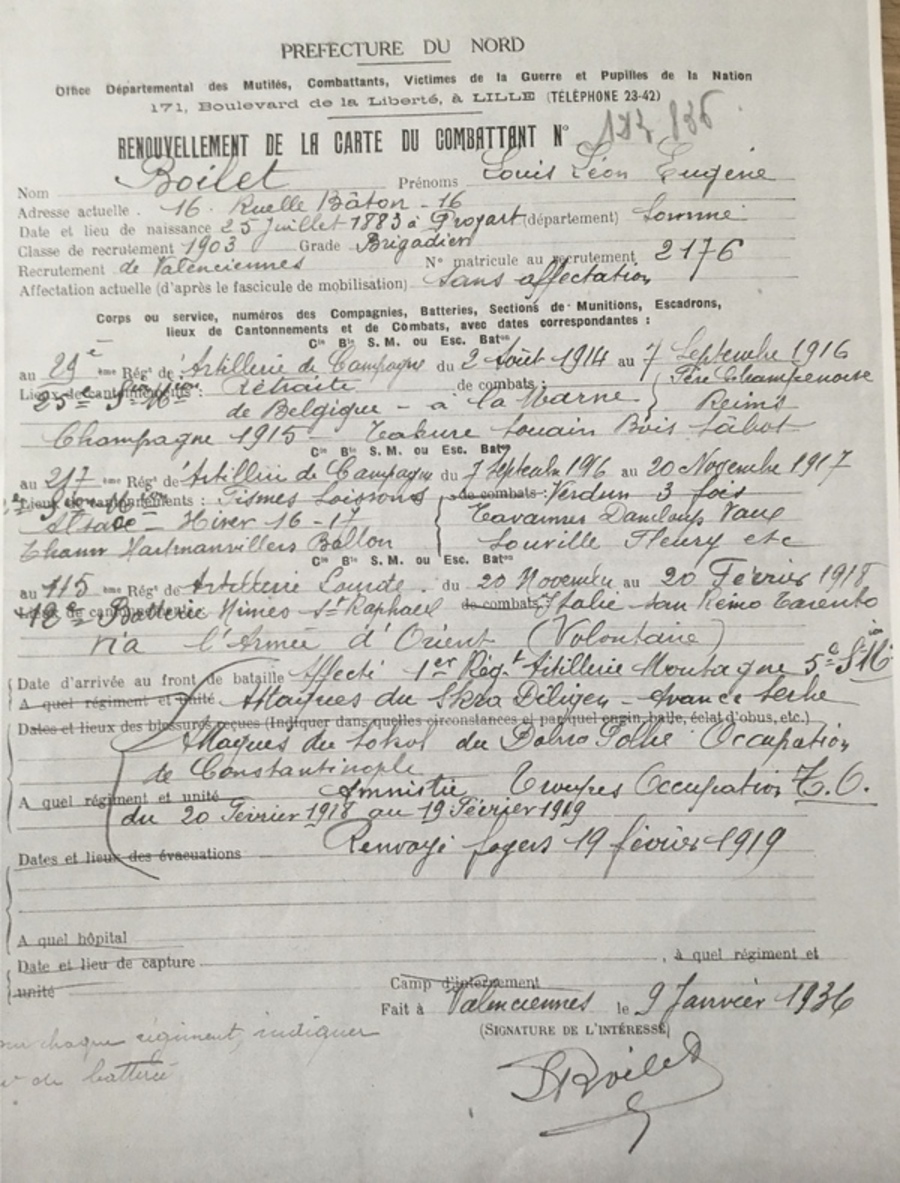 PREFECTURE DU NORD
Office Départemental des Mutilés, Combattants, Victimes de la Guerre et Pupilles de la Nation
171, Boulevard de la Liberté, à LILLE (TÉLÉPHONE 23-42)
RENOUVELLEMENT DE LA CARTE DU COMBATTANT N°
Nom Boilet Prénoms Louis Léon Eugène
Adresse actuelle . 16 Ruelle Bâton - 16
Date et lieu de naissance 25 Juillet 1883 à Proyart (département) Somme
Classe de recrutement 1903 Grade Brigadier
Recrutement de Valenciennes N° matricule au recrutement 2176
Affectation actuelle (d'après le fascicule de mobilisation) Sans affectation
Corps ou service, numéros des Compagnies, Batteries, Sections de Munitions, Escadrons,
lieux de Cantonnements et de Combats, avec dates correspondantes :
Cie Bie S. M. ou Esc. Baton
au 29e ème Régt de Artillerie de Campagne du 2 Août 1914 au 7 Septembre 1916
Lieux de cantonnements : Retraite de combats : Fère Champenoise
de Belgique - à la Marne Reims
Champagne 1915 - Tahure Souain Bois Sabot
Cie Bie S. M. ou Esc. Baton
au 217 ème Régt de Artillerie de Campagne du 7 Septemb 1916 au 20 Novembre 1917
Lieux de cantonnements : Fismes Soissons de combats : Verdun 3 fois
Alsace - Hiver 16-17 Tavannes Damloup Vaux
Thann Hartmanvillers Ballon Souville Fleury etc
Cie Bie S. M. ou Esc. Baton
au 115 ème Régt de Artillerie Lourde du 20 Novembre au 20 Février 1918
Batterie Nimes St Raphael de combats Italie San Remo Tarento
via l'Armée d'Orient (Volontaire)
Date d'arrivée au front de bataille Affecté 1er Régt Artillerie Montagne 5e S M
A quel régiment et unité Attaques du Skra - Avance Serbe
Dates et lieux des blessures reçues (Indiquer dans quelles circonstances et par quel engin, balle, éclat d'obus, etc.)
Attaques du Sokol du Dobro Polie Occupation
de Constantinople
A quel régiment et unité Amnistie Troupes Occupation T.O.
du 20 Février 1918 au 19 Février 1919
Dates et lieux des évacuations Renvoyé foyers 19 février 1919
A quel hôpital
Date et lieu de capture , à quel régiment et
unité Camp d'internement
Fait à Valenciennes le 9 Janvier 1936
(SIGNATURE DE L'INTÉRESSÉ)
chaque régiment, indiquer
de batterie
Boilet